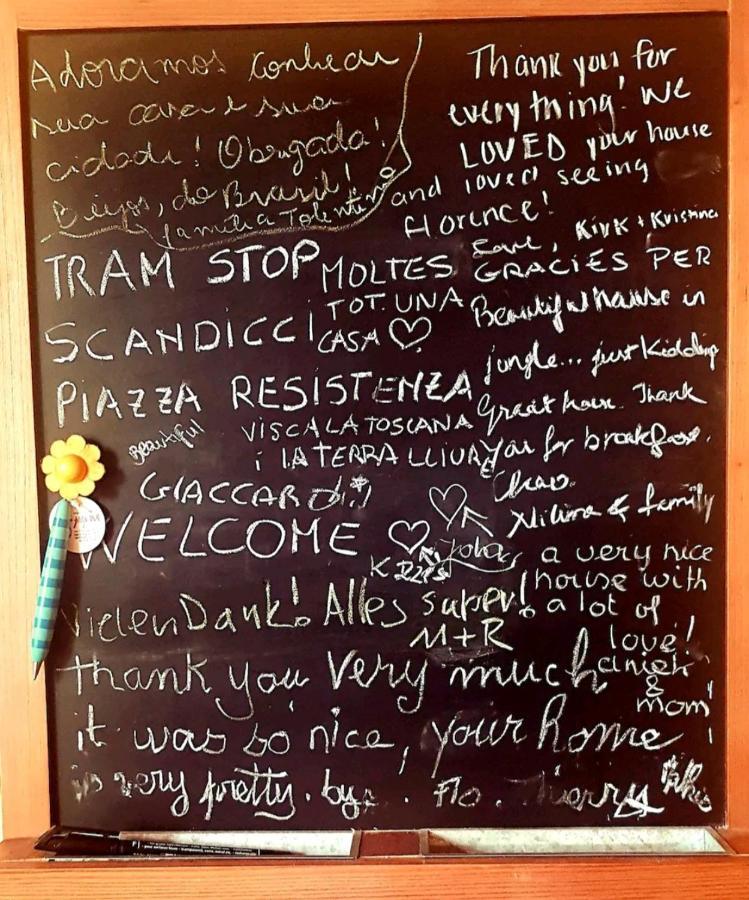 Adoramos conhecer
sua casa e sua
cidade! Obrigada!
Beijos, do Brasil!
Familia Tolentino
Thank you for
everything! We
LOVED your house
and loved seeing
florence!
Kirk + Kristina
TRAM STOP
SCANDICCI
PIAZZA RESISTENZA
MOLTES GRACIES PER
TOT. UNA
CASA ♡
VISCA LA TOSCANA
i LA TERRA LLIURE
Beautiful house in
jungle... just kidding
great house. Thank
you for breakfast.
Ciao.
& family
Beautiful
GIACCARDI
WELCOME
a very nice
house with
a lot of
love!
&
mom
Vielen Dank! Alles super!
M+R
thank you very much
it was so nice, your home
is very pretty. by. Flo. Thierry